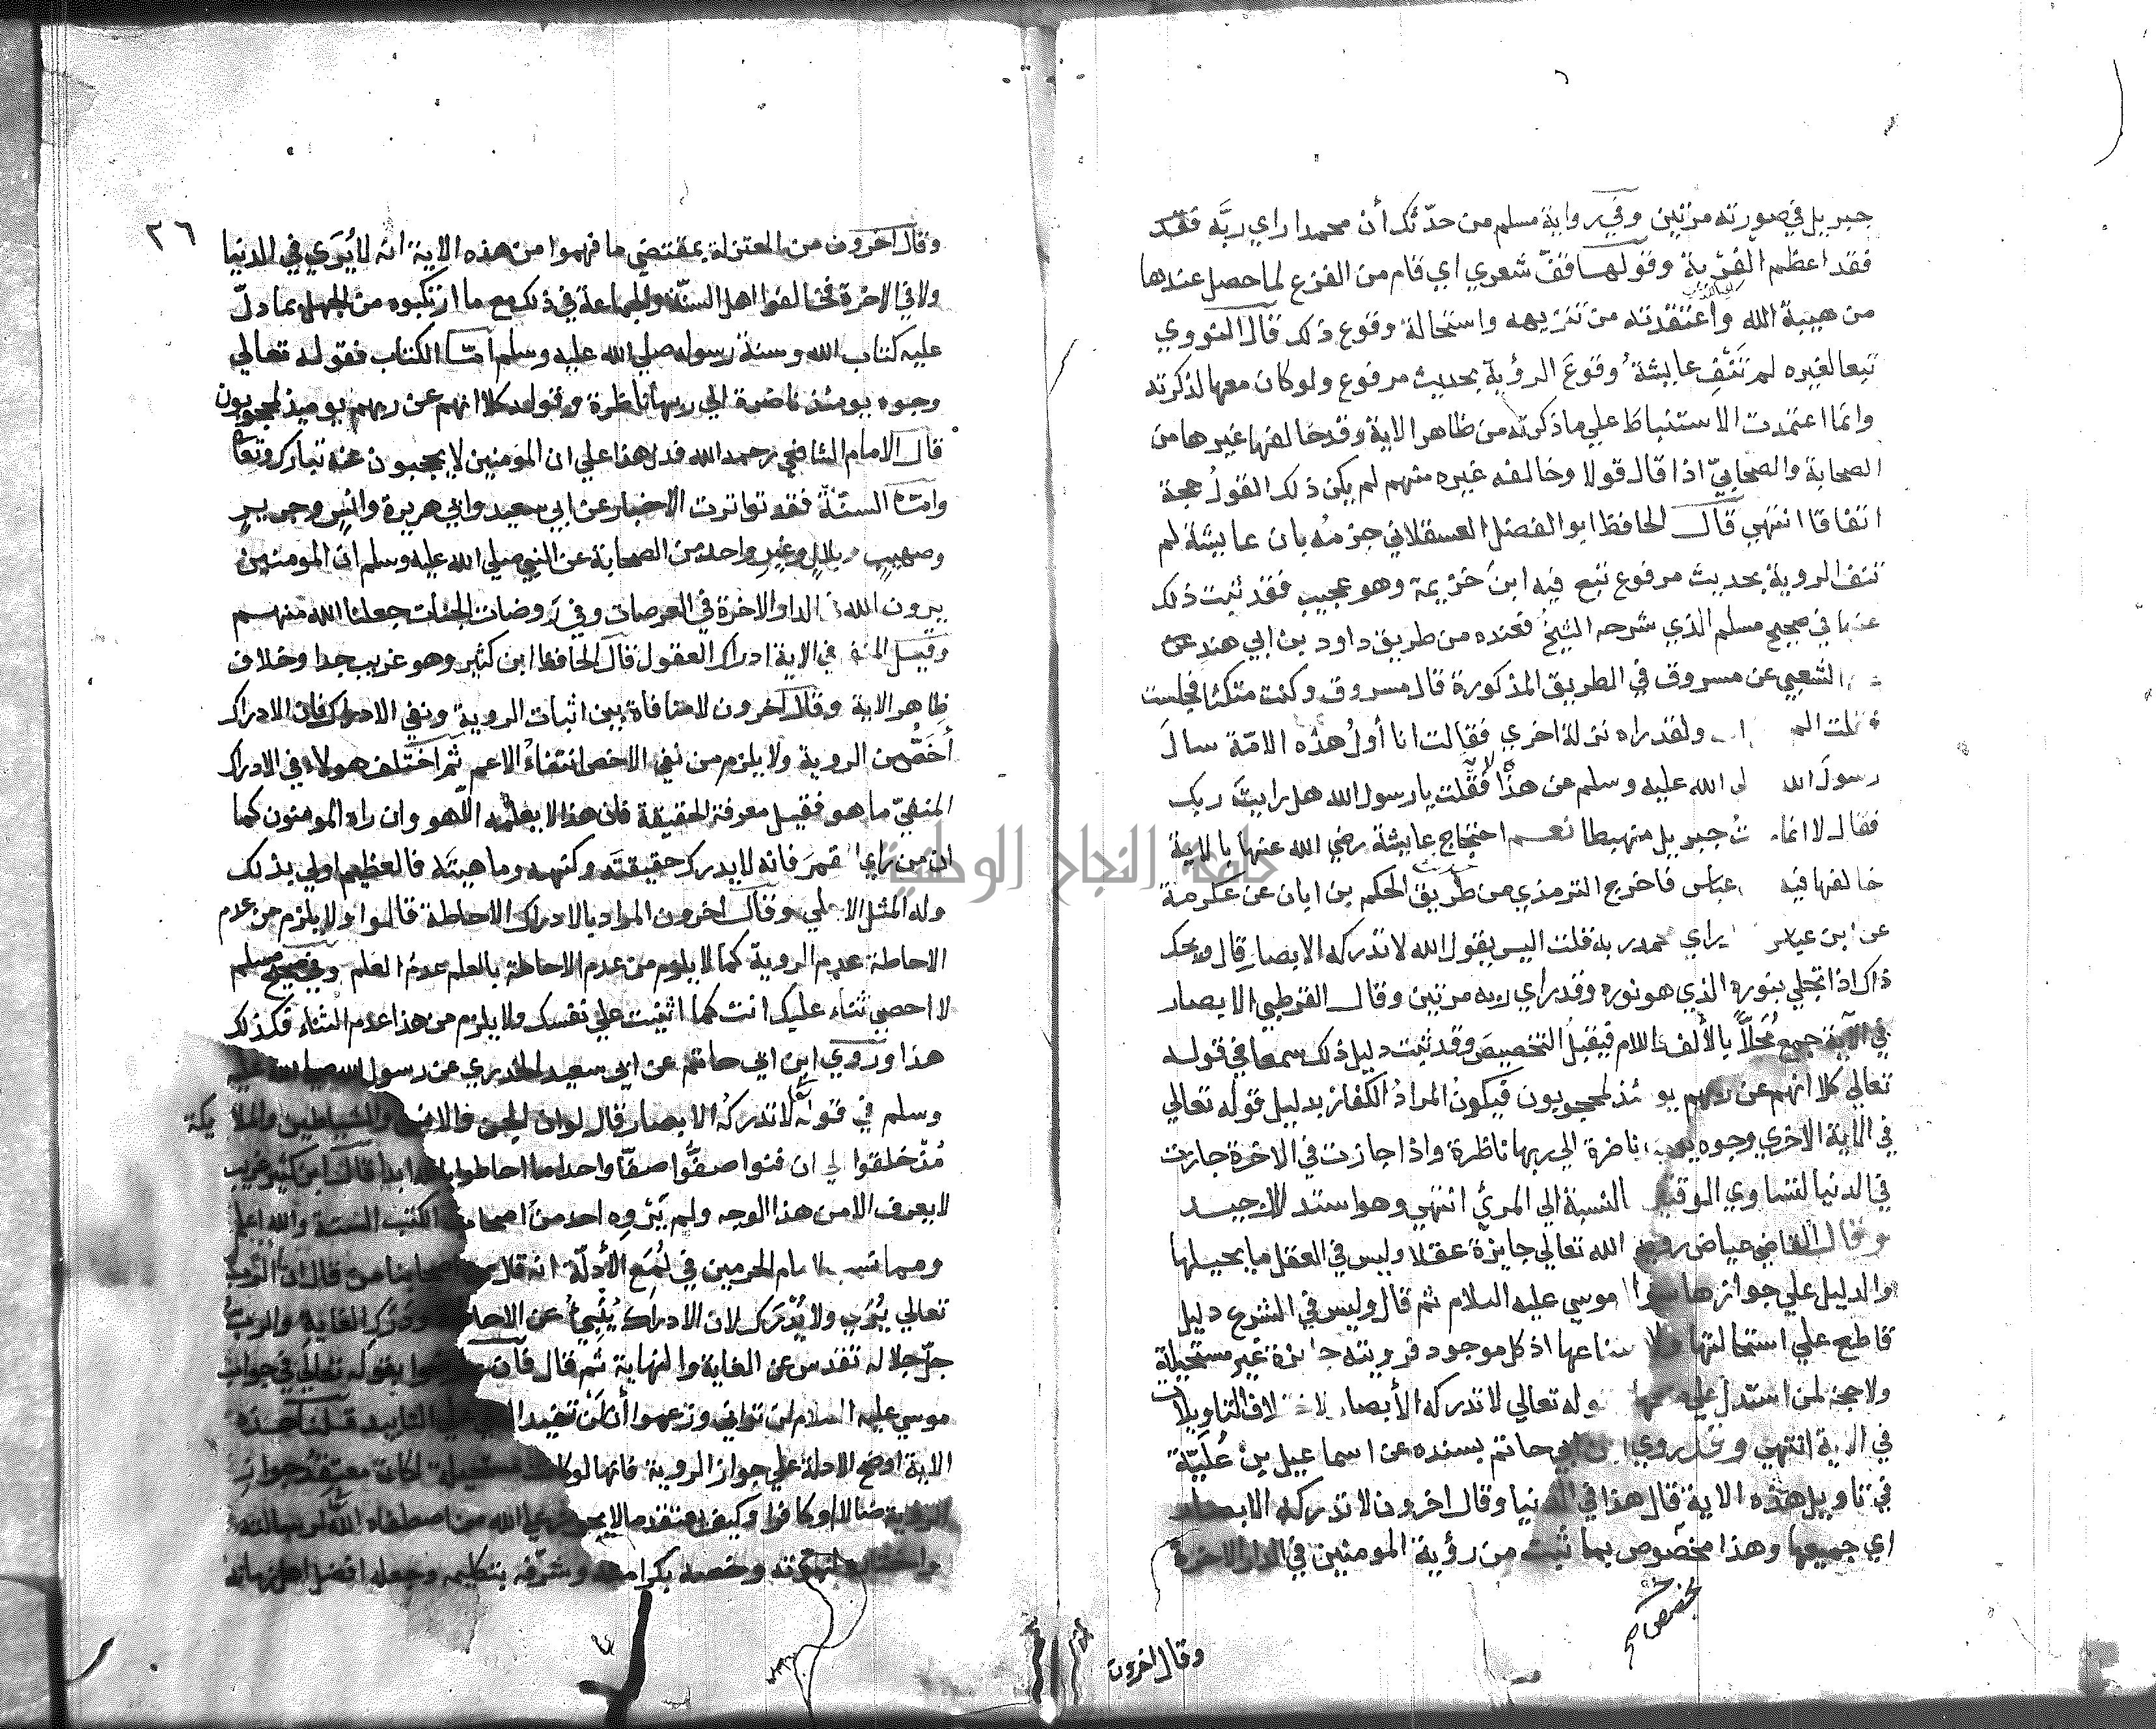 جبريل في صورته مرتين وفي رواية مسلم من حدّثك أن محمدا راي ربَّه فقد
فقد اعظم الفرية وقولها قفّ شعري اي قام من الفزع لما حصل عندها
من هيبة الله واعتقدته من تنزيهه واستحالة وقوع ذلك قال النووي
تبعا لغيره لم تَنْفِ عايشة وقوعَ الرؤية بحديث مرفوع ولو كان معها لذكرته
وانما اعتمدت الاستنباط علي ما ذكرته من ظاهر الاية وقد خالفها غيرها من
الصحابة والصحابيّ اذا قال قولا وخالفه غيره منهم لم يكن ذلك القولُ حجة
اتفاقا انتهي قال الحافظ ابو الفضل العسقلاني جزمُه بان عايشة لم
تنف الروية بحديث مرفوع تبع فيه ابنَ خزيمة وهو عجيب فقد ثبت ذلك
عنها في صحيح مسلم الذي شرحه الشيخُ فعنده من طريق داود بن ابي هند عن
الشعبي عن مسروق في الطريق المذكورة قال مسروق وكنت متكئا فجلست
ولقد راه نزلة اخري فقالت انا أولُ هذه الامّة سالَ
رسولَ الله عليه وسلم من هذا فقلت يا رسول الله هل رايتَ ربك
فقال لا انما جبريل منهبطا نعم احتجاج عايشة رضي الله عنها بالاية
خالفها فيه عباس فاخرج الترمذي من طريق الحكم بن ابان عن عكرمة
عن ابن عباس راي محمد ربه قلت اليس يقول الله لا تدركه الابصار قال ويحك
ذاك اذا تجلي بنوره الذي هو نوره وقد راي ربه مرتين وقال القرطبي الابصار
في الآية جمع مُحَلًّا بالألف واللام فيقبلُ التخصيصَ وقد ثبت دليل ذلك سمعا في قوله
تعالي كلا انهم عن ربهم يومئذ لمحجوبون فيكونُ المرادُ الكفارَ بدليل قوله تعالي
في الاية الاخري وجوه ناضرة الي ربها ناظرة واذا جازت في الاخرة جازت
في الدنيا لتساوي الوقتين النسبة الي المرئي انتهي وهو استدلال جيد
وقال القاضي عياض الله تعالي جايزة عقلا وليس في العقل ما يحيلها
والدليل علي جوازها موسي عليه السلام ثم قال وليس في الشرع دليل
قاطع علي استحالتها ولا امتناعها اذ كل موجود فرويته جايزة غير مستحيلة
ولا حجة لمن استدل علي قوله تعالي لا تدركه الأبصار لاختلاف التاويلات
في الاية انتهي وقد روي ابن ابي حاتم بسنده عن اسماعيل بن عُلَيّة
في تاويل هذه الاية قال هذا في الدنيا وقال اخرون لا تدركه الابصار
اي جميعها وهذا مخصوص بما ثبت من رؤية المومنين في الدار الاخرة
وقال اخرون
٢٦
وقال اخرون من المعتزلة بمقتضي ما فهموا من هذه الاية انه لا يُرَي في الدنيا
ولا في الاخرة فخالفوا اهل السنّة والجماعة في ذلك مع ما ارتكبوه من الجهل بما دلّ
عليه كتاب الله وسنة رسوله صلي الله عليه وسلم امّا الكتاب فقوله تعالي
وجوه يومئذ ناضرة الي ربها ناظرة وقوله كلا انهم عن ربهم يوميذ لمحجوبون
قال الامام الشافعي رحمه الله فدل هذا علي ان المؤمنين لا يحجبون عنه تبارك وتعا
وامّا السنّة فقد تواترت الاخبار عن ابي سعيد وابي هريرة وانسٍ وجريرٍ
وصهيبٍ وبلالٍ وغيرِ واحد من الصحابة عن النبي صلي الله عليه وسلم ان المومنين
يرون الله الدار الاخرة في العرصات وفي رَوضات الجنات جعلنا الله منهم
وقيل في الاية ادراك العقول قال الحافظ ابن كثير وهو غريب جدا وخلاف
ظاهر الاية وقال اخرون لا منافاة بين اثبات الروية ونفي الادراك فان الادراك
أخَصُّ من الروية ولا يلزم من نفي الاخص انتفاءُ الاعم ثم اختلف هولاء في الادراك
المنفيّ ما هو فقيل معرفة الحقيقة فان هذا لا يعلمه الا هو وان راه المومنون كما
ان من راي القمرَ فانه لا يدرك حقيقتَه وكنهه وماهيتَه فالعظيم اولي بذلك
وله المثل الاعلي وقال اخرون المراد بالادراك الاحاطة قالوا ولا يلزم من عدم
الاحاطة عدم الروية كما لا يلزم من عدم الاحاطة بالعلم عدمُ العلم وفي صحيح مسلم
لا احصي ثناء عليك انت كما اثنيت علي نفسك ولا يلزم من هذا عدم الثناء فكذلك
هذا وروي ابن ابي حاتم عن ابي سعيد الخدري عن رسول الله صلي الله عليه
وسلم في قوله لا تدركُه الابصار قال لو ان الجن والانس والشياطين والملايكة
مُنْذ خلقوا الي ان فنوا صفُّوا صفًّا واحدا ما احاطوا بالله ابدا قال ابن كثير غريب
لا يعرف الا من هذا الوجه ولم يَرْوِه احد من اصحاب الكتب الستة والله اعلم
ومما لامام الحرمين في لُمَع الأدلّة انه قال اصحابنا من قال ان الرّبَّ
تعالي يُري ولا يُدْرَك لان الادراك يُنْبِئُ عن الاحاطة ودَرْكِ الغاية والربُّ
جلّ جلاله تقدس عن الغاية والنهاية ثم قال فان بقوله تعالي في جواب
موسي عليه السلام لن تراني وزعموا أن لَنْ تفيد علي التابيد قلنا هذه
الاية اوضح الادلة علي جواز الروية فانها لو كانت مستحيلة لكان معتقدُ جواز
الروية ضالا او كافرا وكيف يعتقد ما لا يجوز علي الله من اصطفاه الله لرسالته
واختاره لنبوّته وخصه بكرامته وشرّفه بتكليمه وجعله افضل اهل زمانه